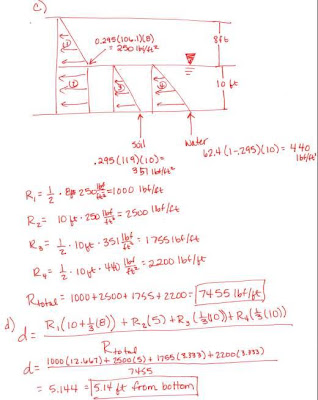 c)
①
0.295(106.1)(8)
= 250 lbf/ft²
8ft
②
③
④
10 ft
soil
water
.295(119)(10)=
351 lbf/ft²
62.4(1-.295)(10) = 440
lbf/ft²
R₁ = 1/2 · 8ft 250 lbf/ft² = 1000 lbf/ft
R₂ = 10ft · 250 lbf/ft² = 2500 lbf/ft
R₃ = 1/2 · 10ft · 351 lbf/ft² = 1755 lbf/ft
R₄ = 1/2 · 10ft · 440 lbf/ft² = 2200 lbf/ft
Rtotal = 1000+2500+1755+2200 = 7455 lbf/ft
d) d = R₁(10+1/3(8)) + R₂(5) + R₃(1/3(10)) + R₄(1/3(10))
Rtotal
d = 1000(12.667)+2500(5)+1755(3.333)+2200(3.333)
7455
= 5.144 = 5.14 ft from bottom